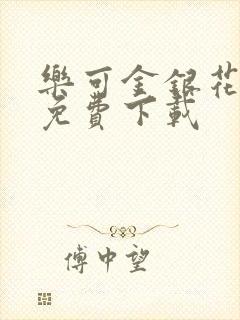 樂可金銀花
免費下載
傅中望